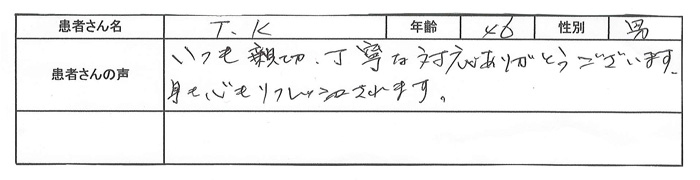 患者さん名 T.K 年齢 46 性別 男
患者さんの声 いつも親切、丁寧な対応ありがとうございます。
身も心もリフレッシュされます。